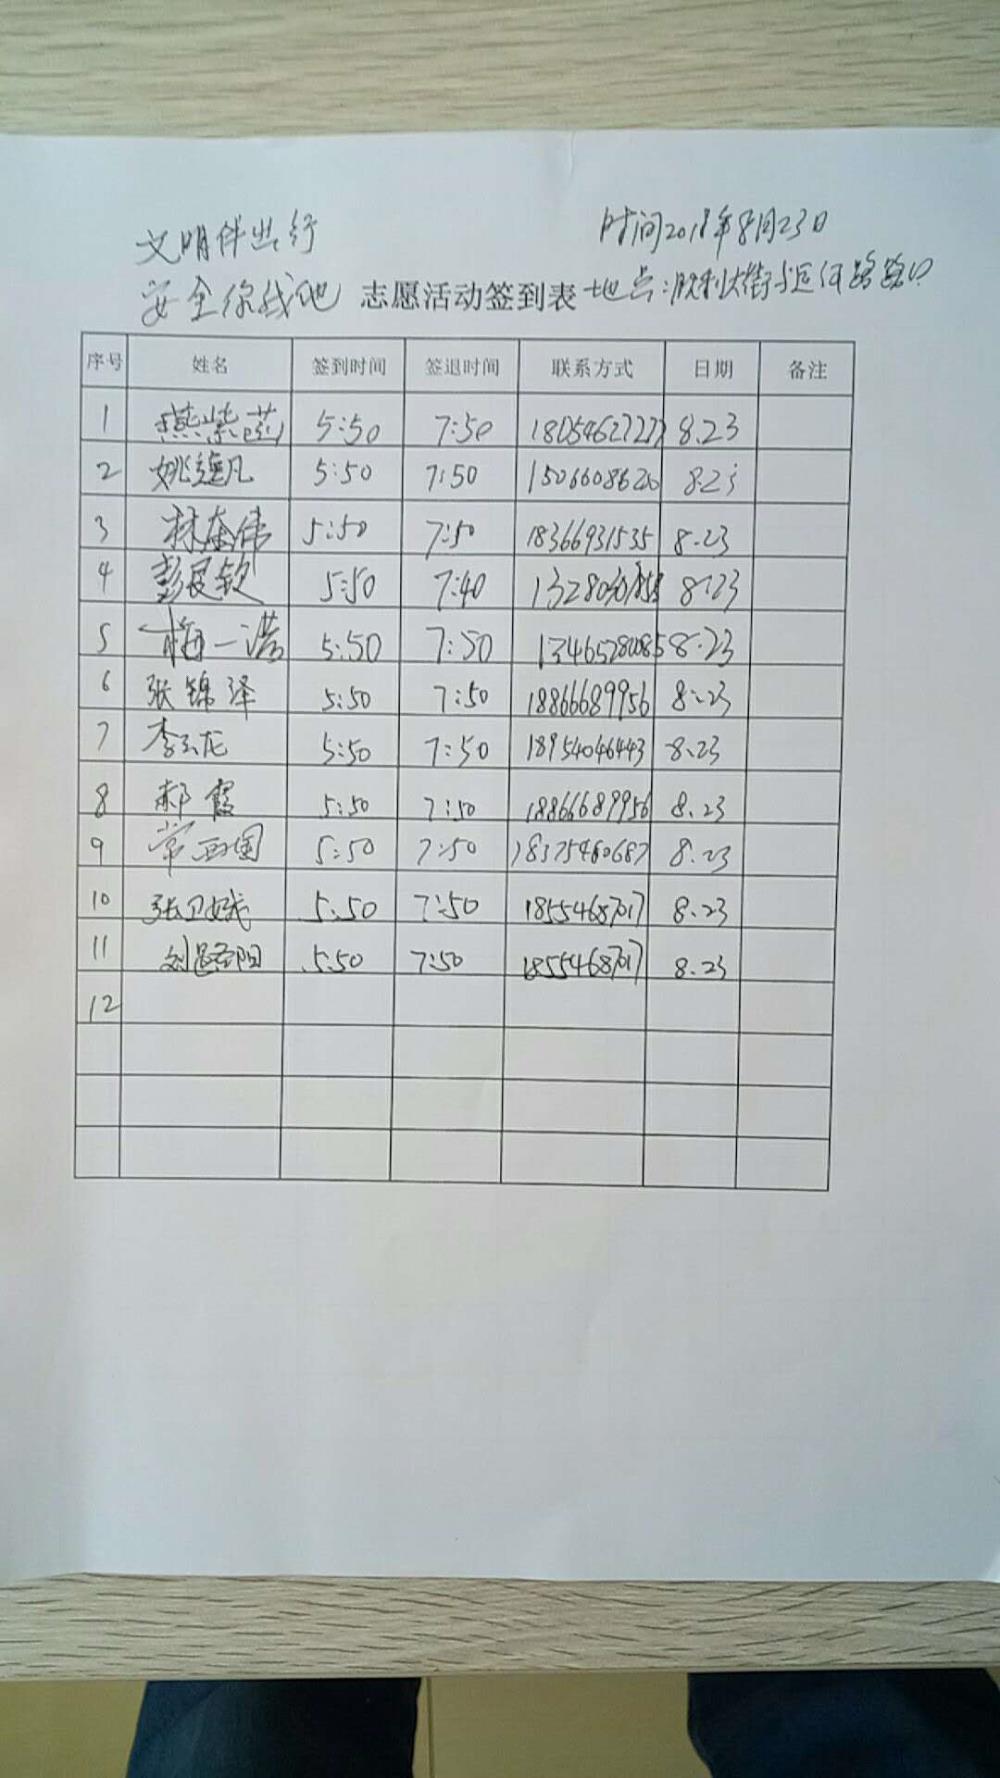 文明伴出行 时间2018年8月23日
安全你我他 志愿活动签到表 地点:胜利大街与运河路路口
序号 姓名 签到时间 签退时间 联系方式 日期 备注
1 燕紫 5:50 7:50 8.23
2 姚 凡 5:50 7:50 1506608620 8.23
3 林 伟 5:50 7:50 18366931535 8.23
4 彭 钦 5:50 7:40 8.23
5 梅一诺 5:50 7:50 13465280085 8.23
6 张锦泽 5:50 7:50 18866689956 8.23
7 李云龙 5:50 7:50 18954046443 8.23
8 郝霞 5:50 7:50 18866689956 8.23
9 常西国 5:50 7:50 18375460687 8.23
10 张卫娥 5:50 7:50 18554687017 8.23
11 刘 阳 5:50 7:50 18554687017 8.23
12